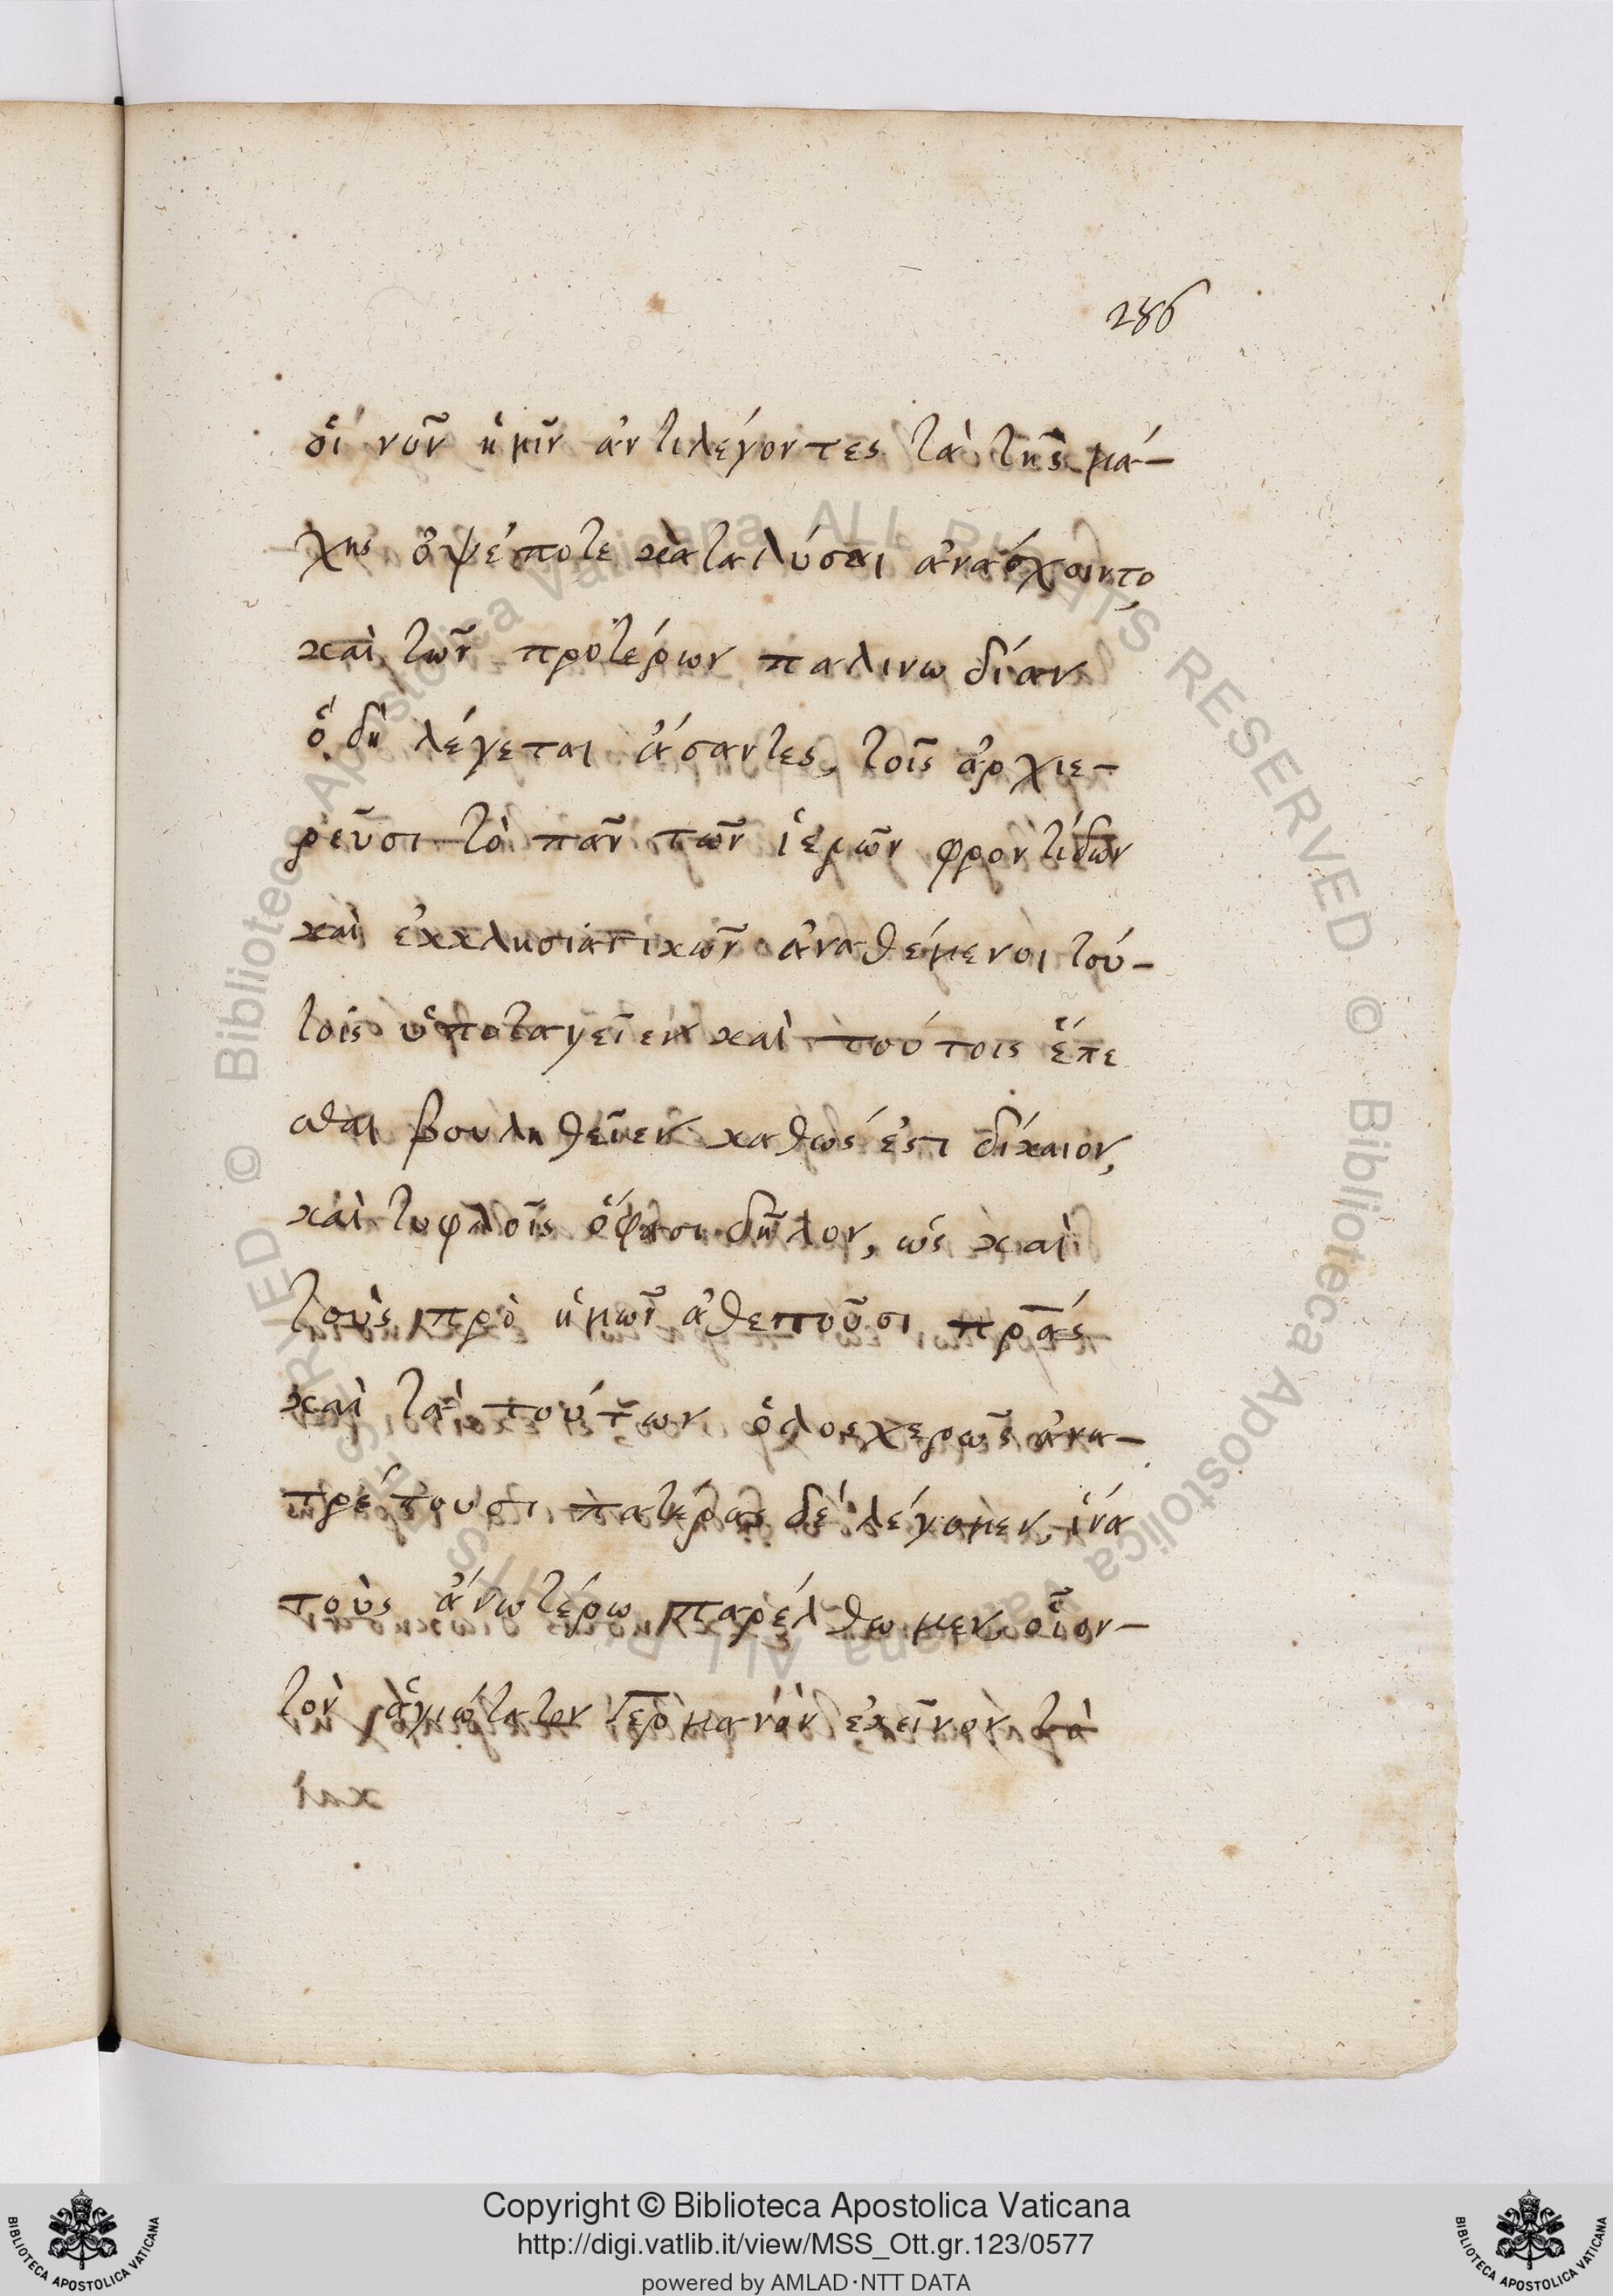 286
οἱ νῦν ἡμῖν ἀντιλέγοντες τὰ τῆς μά-
χης ὀψέποτε καταλύσαι ἀνάσχοιντο,
καὶ τῶν προτέρων παλινωδίαν
ὃ δὴ λέγεται ἄσαντες, τοῖς ἀρχιε-
ρεῦσι τὸ πᾶν τῶν ἱερῶν φροντίδων
καὶ ἐκκλησιαστικῶν ἀναθέμενοι τού-
τοις ὑποταγεῖεν καὶ τούτοις ἕπε
σθαι βουληθεῖεν καθώς ἐστι δίκαιον,
καὶ τυφλοῖς ὄφασι δῆλον, ὡς καὶ
τοὺς πρὸ ἡμῶν ἀθετοῦσι πρ̅ας
καὶ τὰ τούτων ὁλοσχερῶς ἀνα-
τρέπουσι πατέρας δὲ λέγομεν, ἵνα
τοὺς ἀνωτέρω παρέλθωμεν, οἷον-
τὸν ἁγιώτατον Γερμανὸν ἐκεῖνον τὰ
Copyright © Biblioteca Apostolica Vaticana
http://digi.vatlib.it/view/MSS_Ott.gr.123/0577
powered by AMLAD·NTT DATA
BIBLIOTECA APOSTOLICA VATICANA
BIBLIOTECA APOSTOLICA VATICANA
© Biblioteca Apostolica Vaticana ALL RIGHTS RESERVED © Biblioteca Apostolica Vaticana ALL RIGHTS RESERVED